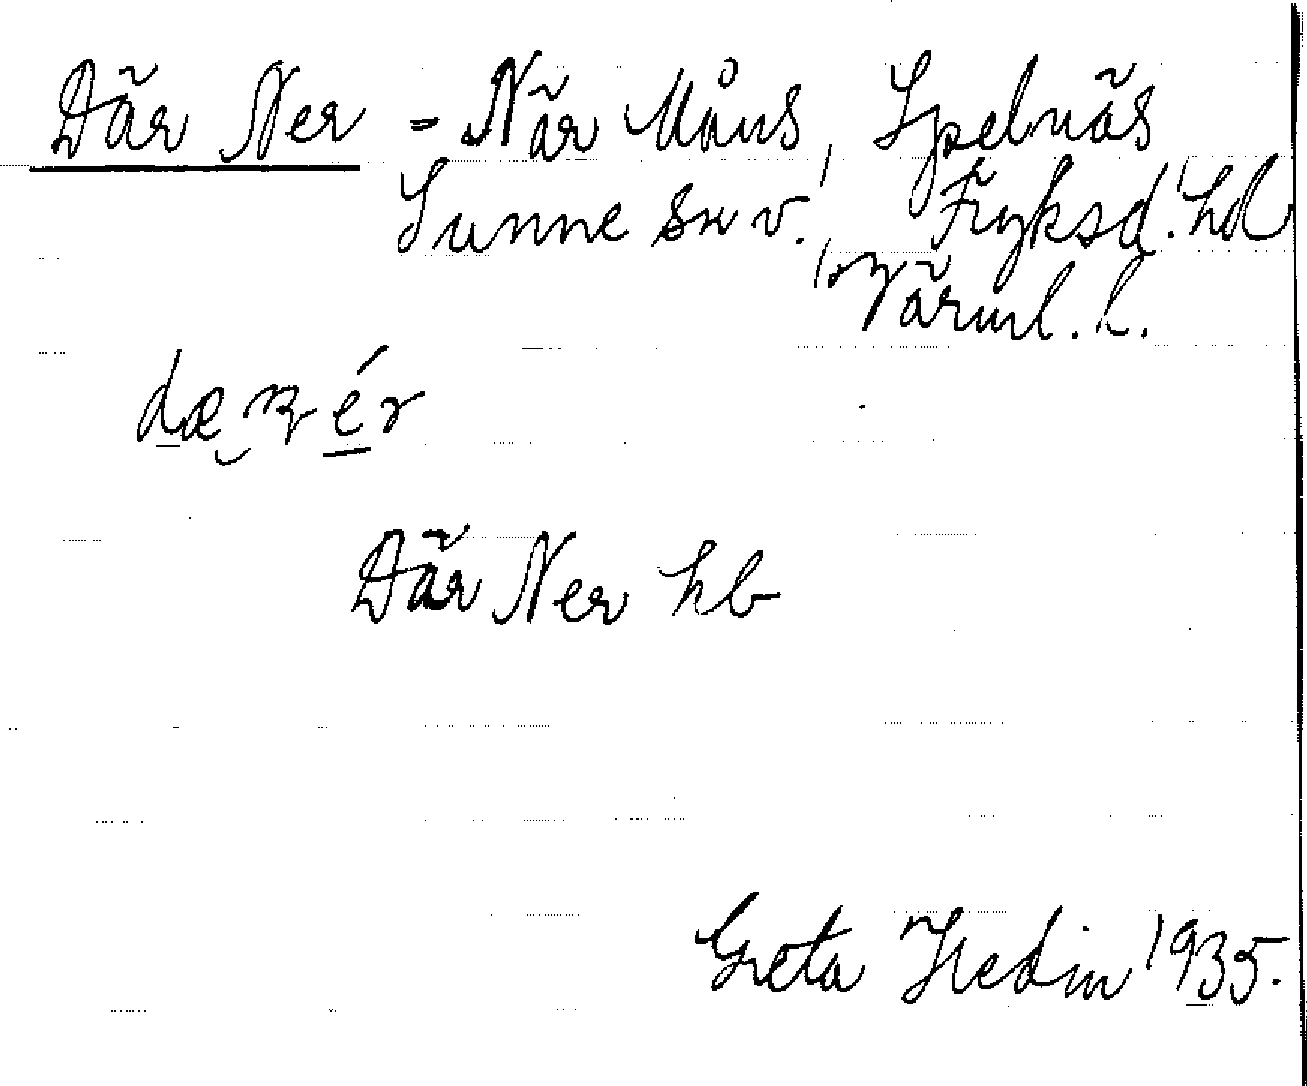 Där Ner = När Måns, Spelnäs
Sunne sn v., Fryksd. hd
Värml. l.
Där Ner hb
Greta Hedin 1935.